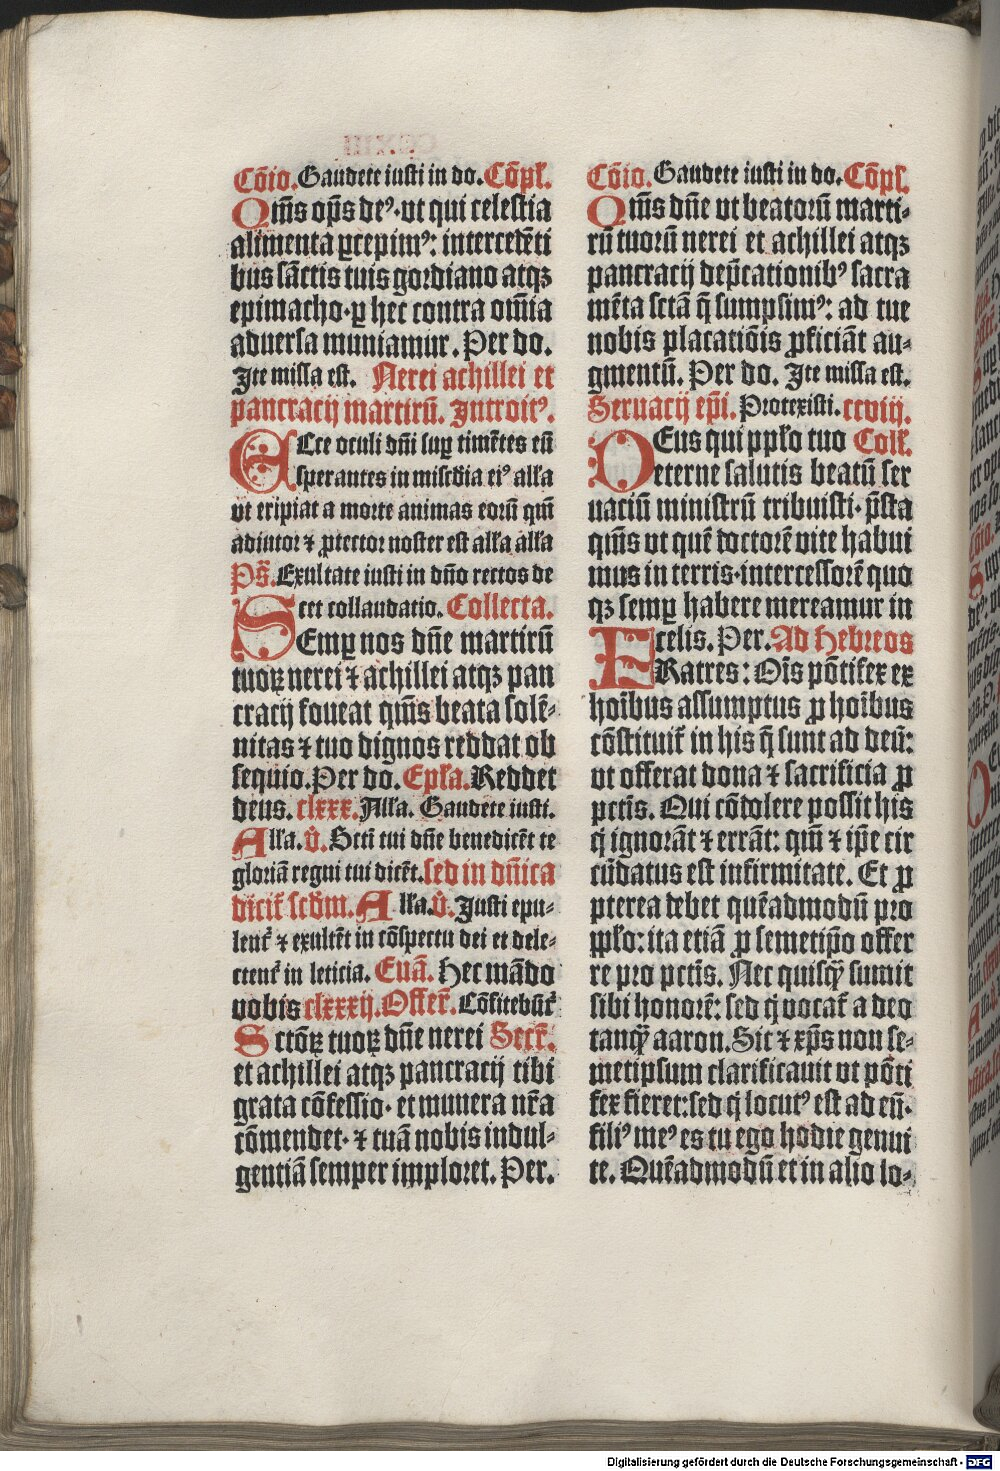 Cōio. Gaudete iusti in do. Cōpl̄.
Qm̄s op̄s deꝰ· vt qui celestia
alimenta ꝑcepimꝰ: intercedēti
bus sāctis tuis gordiano atqꝫ
epimacho· ꝑ hec contra om̄ia
aduersa muniamur. Per do.
Ite missa est. Nerei achillei et
pancracij martirū. Introitꝰ.
Ecce oculi dn̄i suꝑ timētes eū
sperantes in misc̄dia eiꝰ all̄a
vt eripiat a morte animas eorū qm̄
adiutor ⁊ ꝓtector noster est all̄a all̄a
Ps̄. Exultate iusti in dn̄o rectos de
cet collaudatio. Collecta.
Semꝑ nos dn̄e martirū
tuoꝝ nerei ⁊ achillei atqꝫ pan
cracij foueat qm̄s beata solē-
nitas ⁊ tuo dignos reddat ob
sequio. Per do. Epl̄a. Reddet
deus. clxxx. All̄a. Gaudete iusti.
All̄a. v̄. Sctī tui dn̄e benedicēt te
gloriā regni tui dicēt. sed in dn̄ica
dicit̄ scd̄m. All̄a. v̄. Justi epu-
lent̄ ⁊ exultēt in cōspectu dei et dele-
ctent̄ in leticia. Euā. Hec mādo
vobis clxxxij. Offer̄. Cōfitebūt̄
Sctōꝝ tuoꝝ dn̄e nerei Secr̄.
et achillei atqꝫ pancracij tibi
grata cōfessio· et munera nr̄a
cōmendet· ⁊ tuā nobis indul-
gentiā semper imploret. Per.
Cōio. Gaudete iusti in do. Cōpl̄.
Qm̄s dn̄e vt beatorū marti-
rū tuorū nerei et achillei atqꝫ
pancracij dep̄cationibꝰ sacra
mēta sctā q̄ sumpsimꝰ: ad tue
nobis placatiōis ꝓficiāt au-
gmentū. Per do. Ite missa est.
Seruacij ep̄i. Protexisti. ccviij.
Deus qui ppl̄o tuo Coll̄.
eterne salutis beatū ser
uaciū ministrū tribuisti· p̄sta
qm̄s vt quē doctorē vite habui
mus in terris· intercessorē quo
qꝫ semꝑ habere mereamur in
celis. Per. Ad Hebreos
FRatres: Oīs pōtifex ex
hoībus assumptus ꝓ hoībus
cōstituit̄ in his q̄ sunt ad deū:
vt offerat dona ⁊ sacrificia ꝓ
pctīs. Qui cōdolere possit his
q̇ ignorāt ⁊ errāt: qm̄ ⁊ ip̄e cir
cūdatus est infirmitate. Et ꝓ
pterea debet quēadmodū pro
ppl̄o: ita etiā ꝓ semetip̄o offer
re pro pctīs. Nec quisq̄ sumit
sibi honorē: sed q̇ vocat̄ a deo
tanq̄ aaron. Sic ⁊ xp̄s non se-
metipsum clarificauit vt pōti
fex fieret: sed q̇ locutꝰ est ad eū·
filiꝰ meꝰ es tu ego hodie genui
te. Quēadmodū et in alio lo-
Digitalisierung gefördert durch die Deutsche Forschungsgemeinschaft - DFG